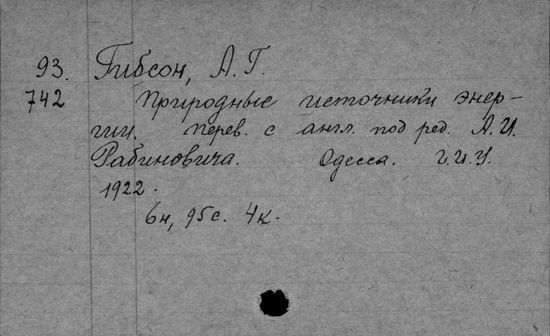 93. Гибсон, А. Г.
742 Природные источники энер-
гии. перев. с англ. под ред. А. И.
Рабиновича. Одесса. Г.И.У.
1922.
6н, 95с. 4к.